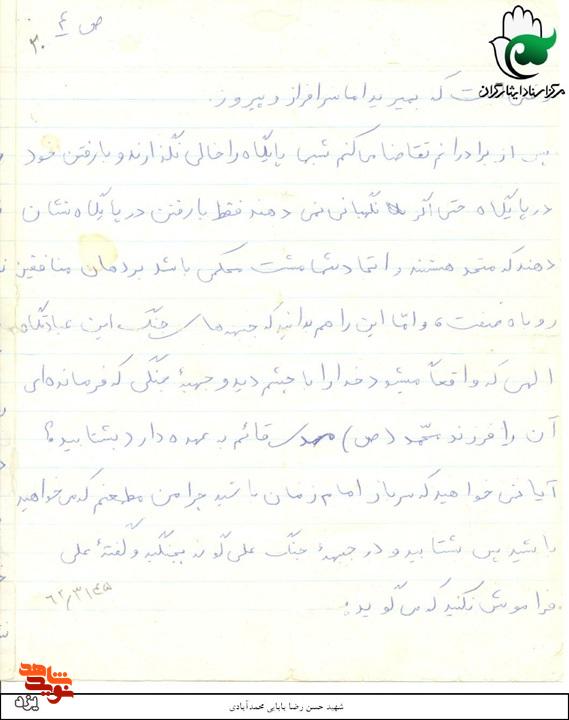 ص ۴
۳۰
مرکز اسناد ایثارگران
است که بمیرید اما سرافراز و پیروز.
پس از برادرانم تقاضا می‌کنم شبها پایگاه را خالی نگذارند و با رفتن خود
در پایگاه حتی اگر نگهبانی نمی دهند فقط با رفتن در پایگاه نشان
دهند که متحد هستند و اتحاد شما مشت محکمی باشد بر دهان منافقین
روباه صفت، و اما این را هم بدانید که جبهه های جنگ این عبادتگاه
الهی که واقعاً میشود خدا را با چشم دید و جبههٔ جنگی که فرمانده‌ای
آن را فرزند محمد (ص) مهدی قائم به عهده دارد بشتابید؟
آیا نمی خواهید که سرباز امام زمان باشید چرا من مطمئنم که می‌خواهید
باشید پس بشتابید و در جبههٔ جنگ علی گونه بجنگید و گفتهٔ علی
فراموش نکنید که می گوید:
نوید شاهد
یزد
شهید حسن رضا بابایی محمدآبادی